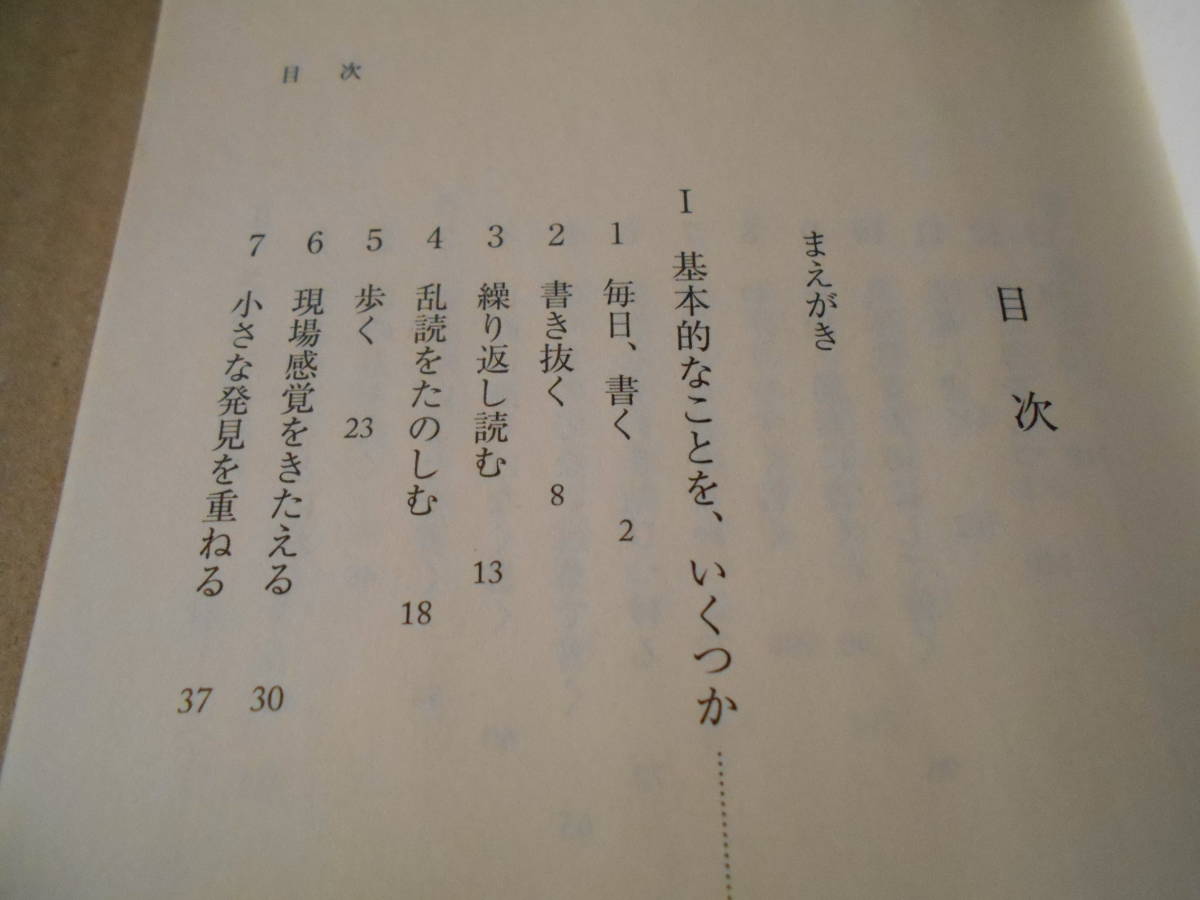 目次
まえがき
I 基本的なことを、いくつか
1 毎日、書く 2
2 書き抜く 8
3 繰り返し読む 13
4 乱読をたのしむ 18
5 歩く 23
6 現場感覚をきたえる 30
7 小さな発見を重ねる 37
目次